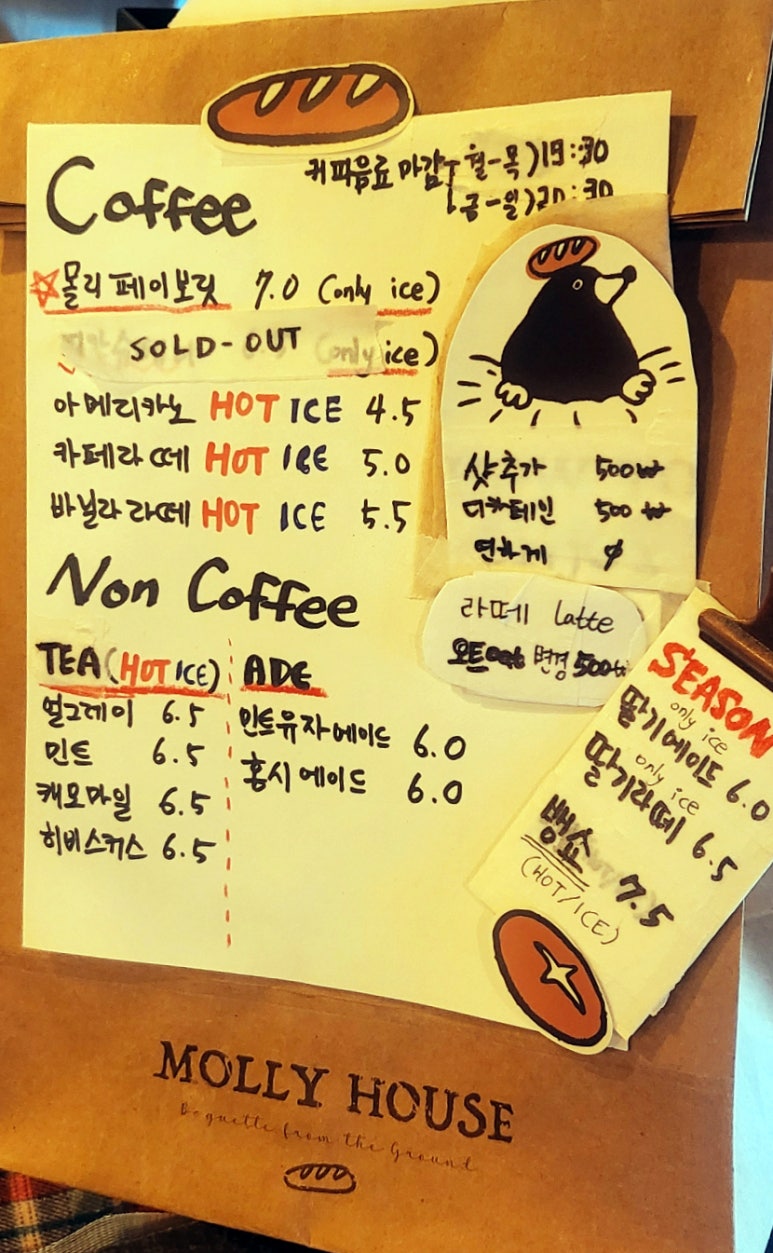 커피음료 마감 월-목) 19:30
금-일) 20:30
Coffee
몰리 페이보릿 7.0 (only ice)
SOLD-OUT (only ice)
아메리카노 HOT ICE 4.5
카페라떼 HOT ICE 5.0
바닐라 라떼 HOT ICE 5.5
샷추가 500₩
디카페인 500₩
연하게 φ
라떼 latte
오트 변경 500₩
Non Coffee
TEA (HOT ICE)
얼그레이 6.5
민트 6.5
캐모마일 6.5
히비스커스 6.5
ADE
민트유자에이드 6.0
홍시에이드 6.0
SEASON
only ice
딸기에이드 6.0
only ice
딸기라떼 6.5
뱅쇼 7.5
(HOT/ICE)
MOLLY HOUSE
Baguette from the Ground